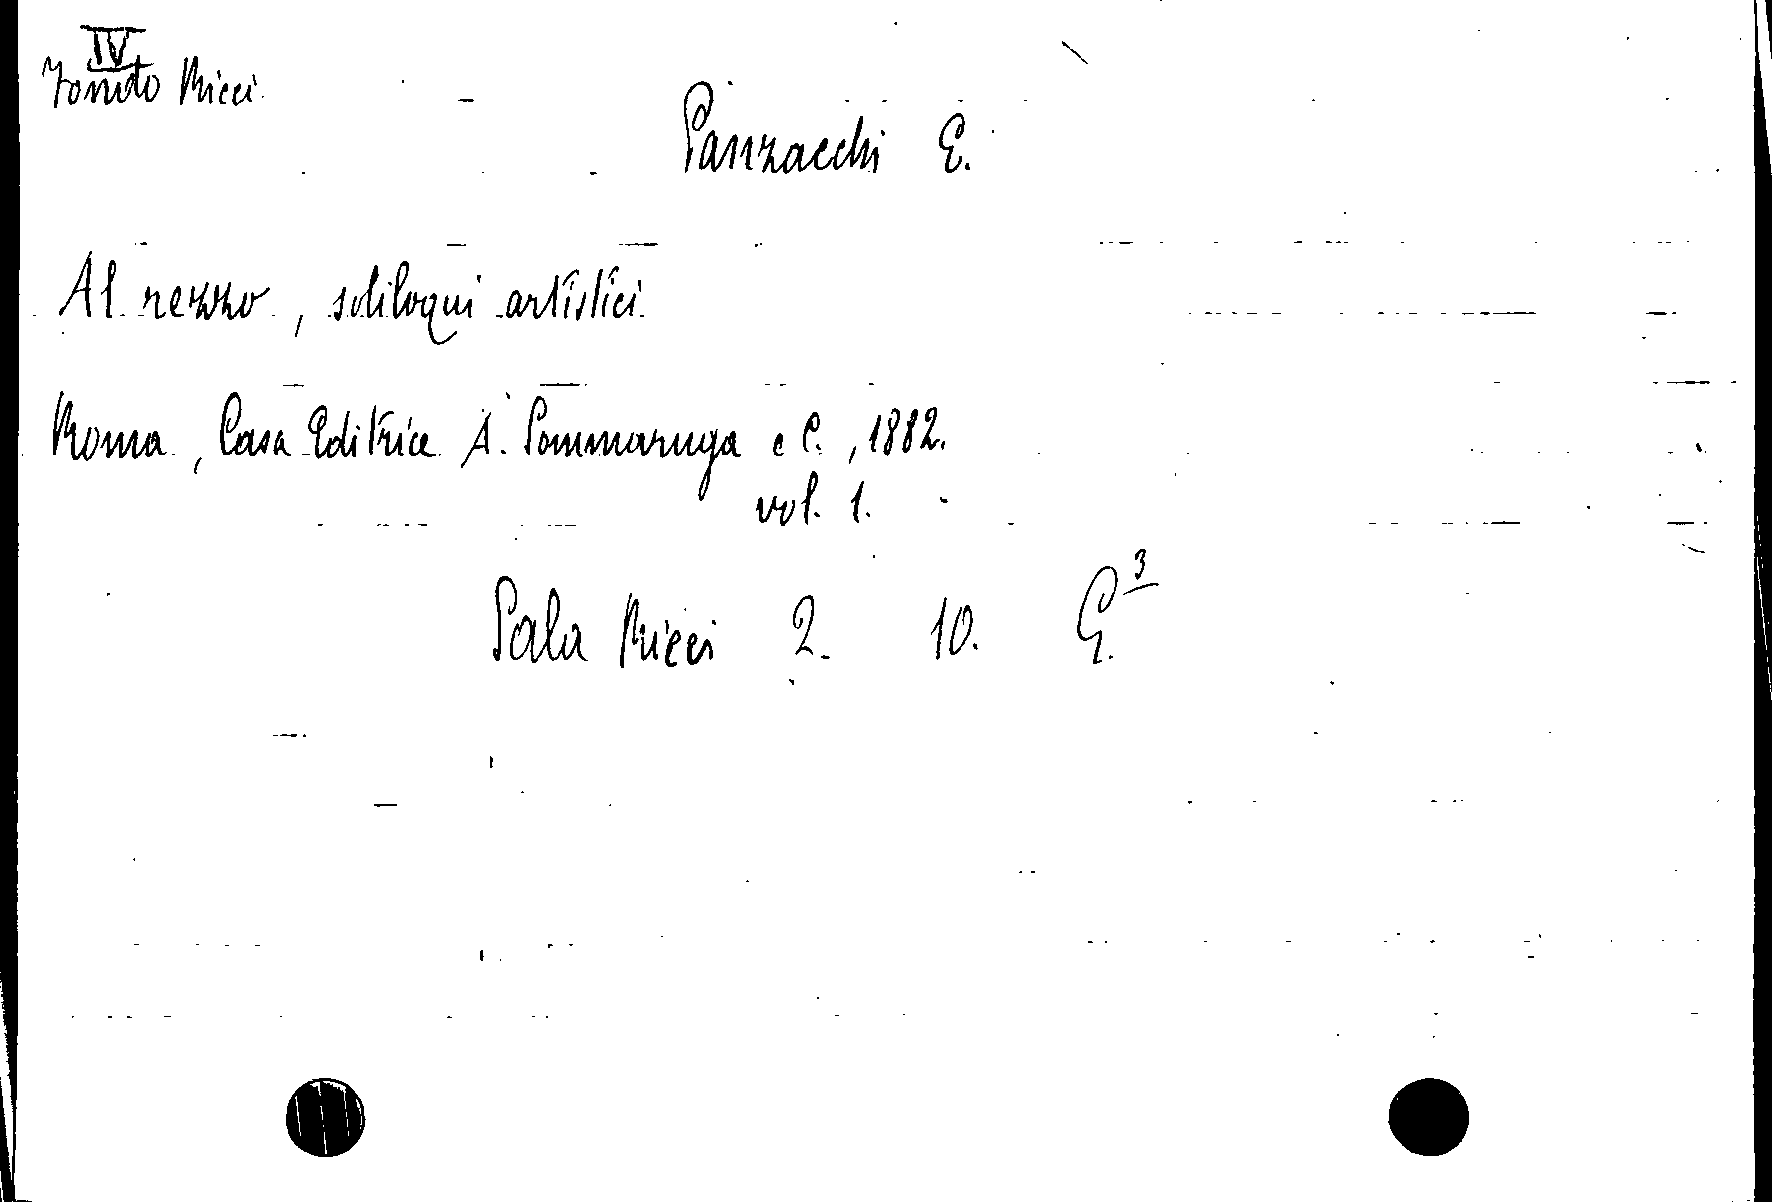 IV
Fondo Ricci
Panzacchi E.
Al rezzo, soliloqui artistici
Roma, Casa Editrice A. Sommaruga e C., 1882.
vol. 1.
Sala Ricci 2. 10. G.³